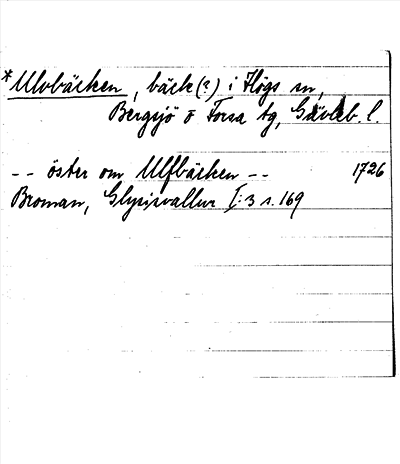 *Ulvbäcken, bäck (?) i Högs sn,
Bergsjö o Forsa tg, Gävleb. l.
-- öster om Ulfbäcken -- 1726
Broman, Glysisvallur I:3 s. 169